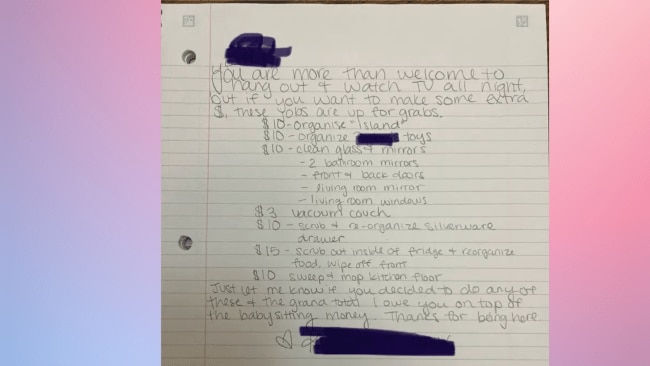 You are more than welcome to
hang out & watch TV all night,
but if you want to make some extra
$, these jobs are up for grabs.
$10 - organise "Island"
$10 - organize toys
$10 - clean glass & mirrors
- 2 bathroom mirrors
- front & back doors
- living room mirror
- living room windows
$3 vacuum couch
$10 - scrub & re-organize silverware
drawer
$15 - scrub out inside of fridge & reorganize
food. wipe off front
$10 sweep & mop kitchen floor
Just let me know if you decided to do any of
these & the grand total I owe you on top of
the babysitting money. Thanks for being here